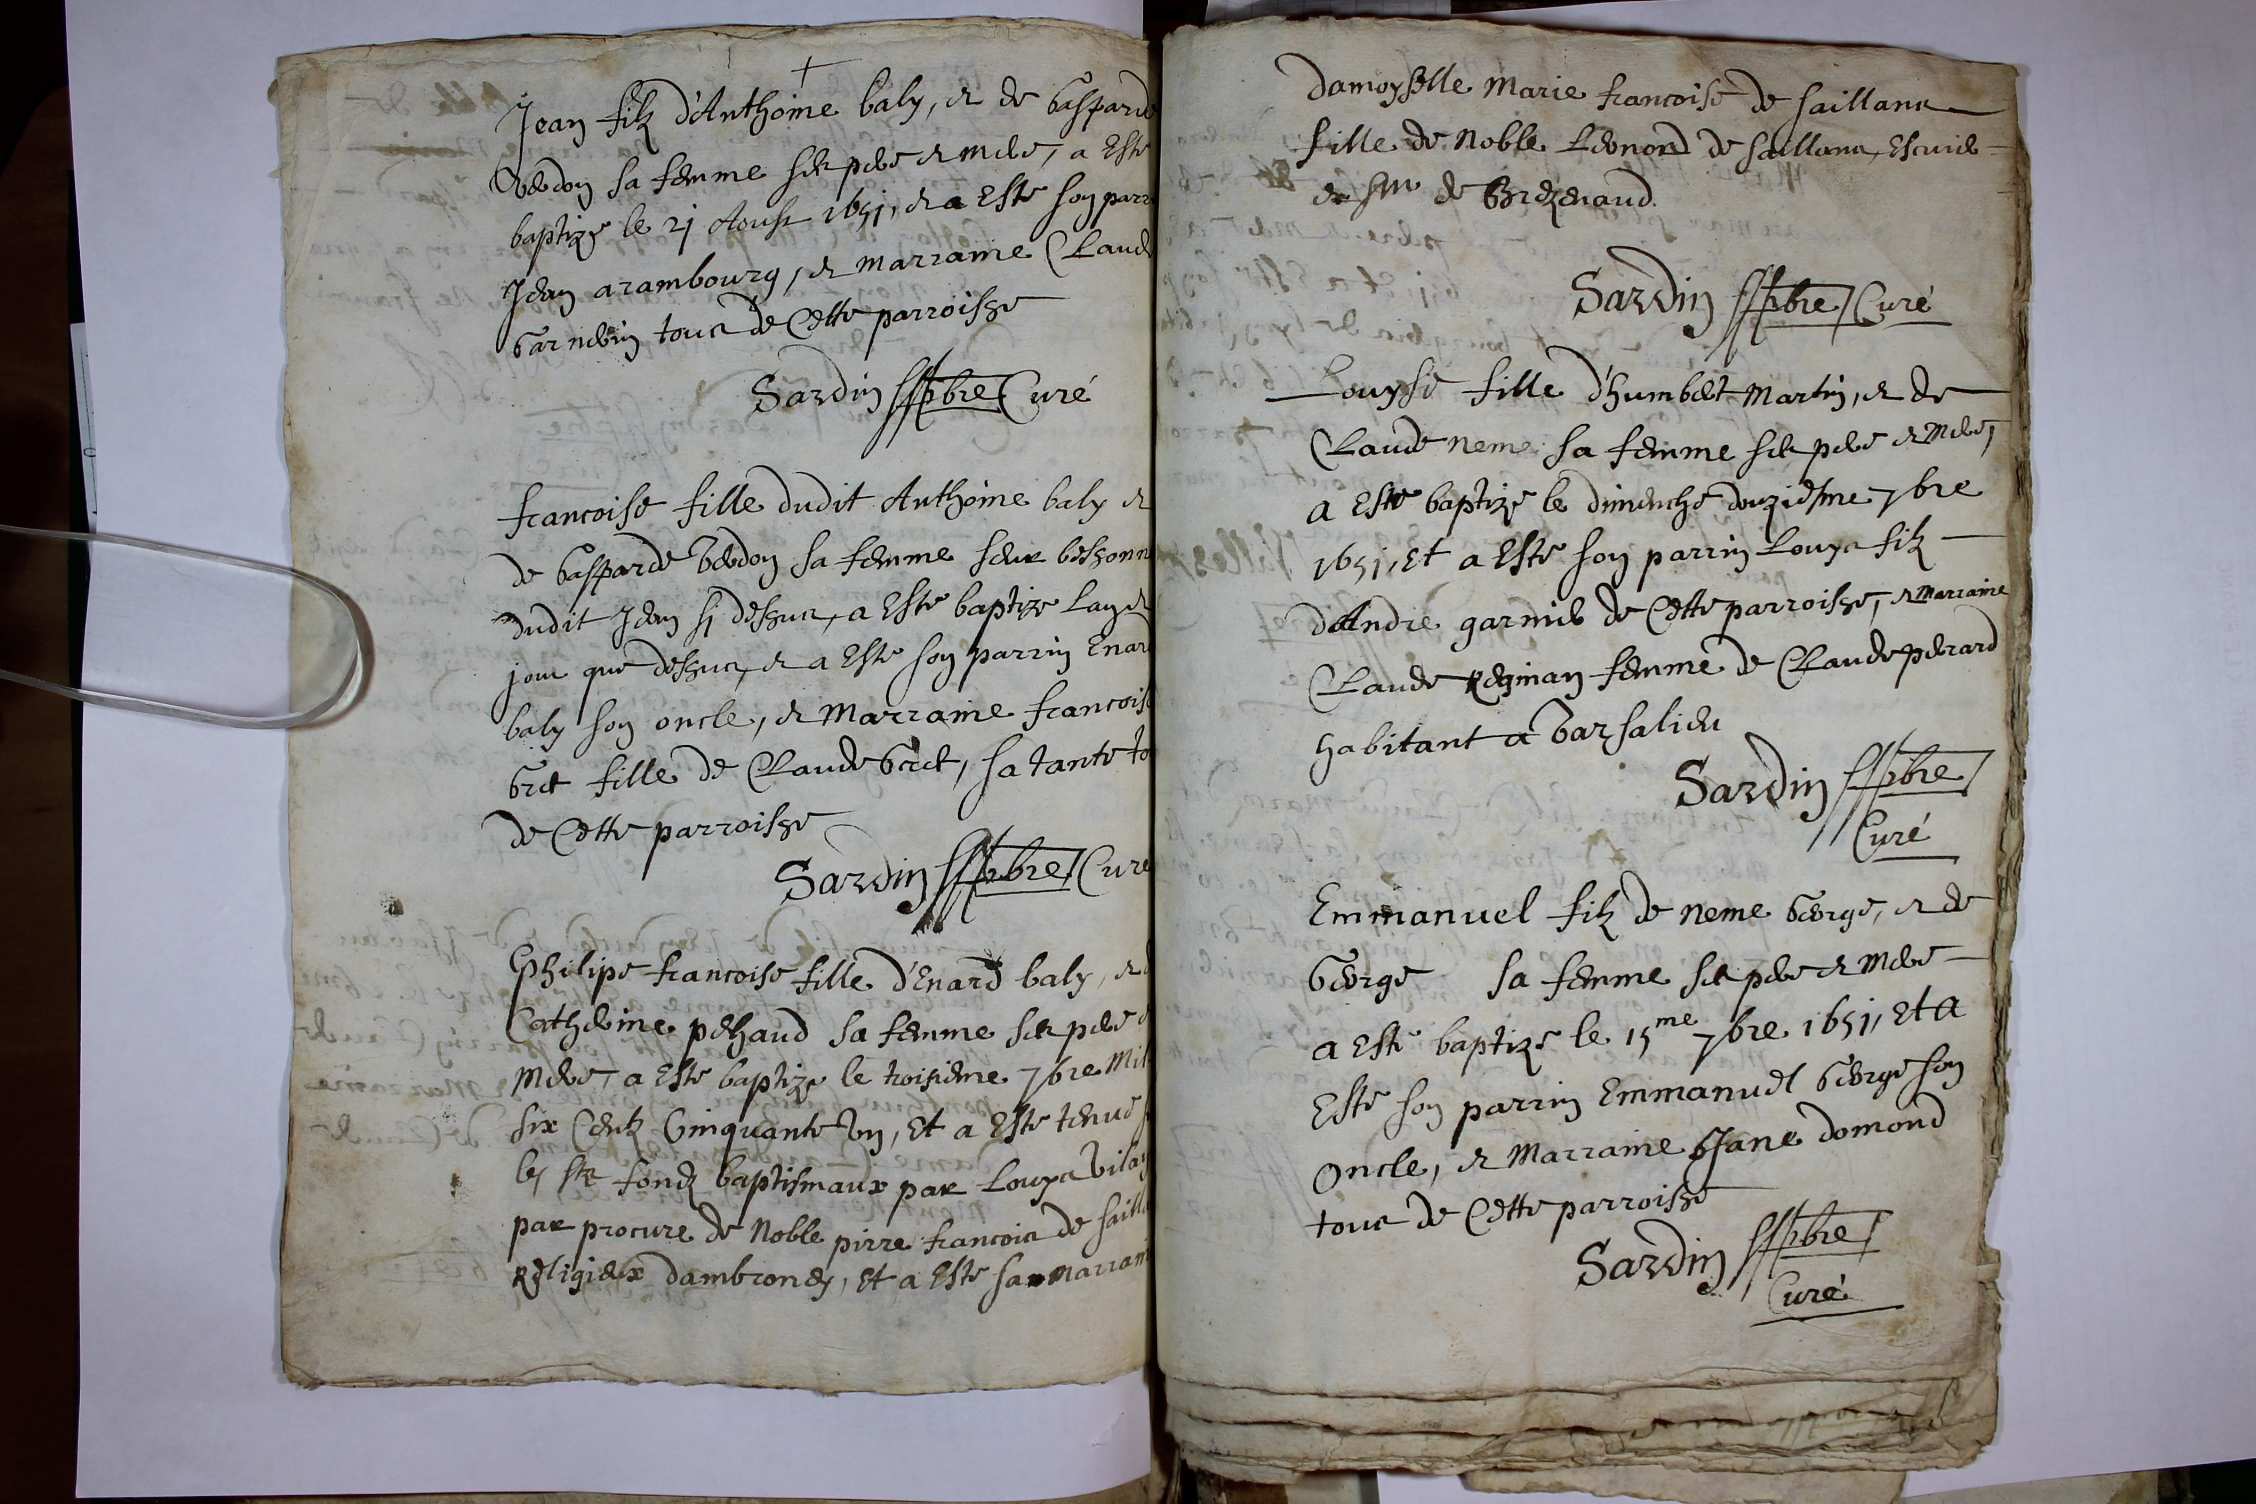 Jean filz d'Anthoine baly, et de Gasparde
Verdon sa femme ses pere et mere, a Esté
baptizé le 21 Aoust 1651, et a Esté son parr
Jean arambourg, et marraine Claud
Garnerin tous de Cette parroisse
Sardin pbre Curé
francoise fille dudit Anthoine baly et
de Gasparde Verdon sa femme seur bessonn
dudit Jean sy dessus, a Esté baptizé Lan et
jour que dessus, et a Esté son parrin Enar
baly son oncle, et Marraine francois
Gret fille de Claude Gret, sa tante to
de Cette parroisse
Sardin pbre Curé
Philipe francoise fille d'Enard baly, et d
Catherine pehaud sa femme ses pere e
Mere, a Esté baptize le troisieme 7bre Mil
six Centz Cinquante Un, Et a Esté tenue
les sts fondz baptismaux par Louys
par procure de Noble pirre francois de saill
Religieux dambronay, Et a Esté sa Marrain
Damoyselle Marie francoise de saillans
fille de Noble Leonord de saillans, Escuier
et sr de Brezenaud
Sardin pbre Curé
Louyse fille d'humbert Martin, et de
Claude neme sa femme ses pere et Mere,
a Esté baptizé le dimenche douziesme 7bre
1651, Et a Esté son parrin Louys filz
d'Andre garnier de Cette parroisse, et Marraine
Claude femme de Claude perard
habitant a Varsalieu
Sardin pbre
Curé
Emmanuel filz de neme George, et de
George sa femme ses pere et Mere
a Esté baptizé le 15me 7bre 1651, Et a
Esté son parrin Emmanuel George son
Oncle, et Marraine Jane domond
tous de Cette parroisse
Sardin pbre
Curé